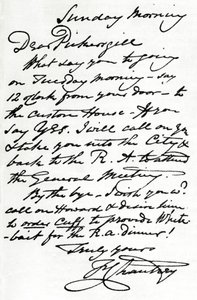 Sunday Morning
Dear Pickersgill
What say you to going
on Tuesday morning - say
12 o'clock from your door - to
the Custom House - If you
say YES. I will call on you
& take you into the City &
back to the R. A. to attend
the General Meeting.
By the bye - I wish you wd.
call on Howard & desire him
to order Cuff to provide White
-bait for the R.a. dinner!
Truly yours
F Chantrey